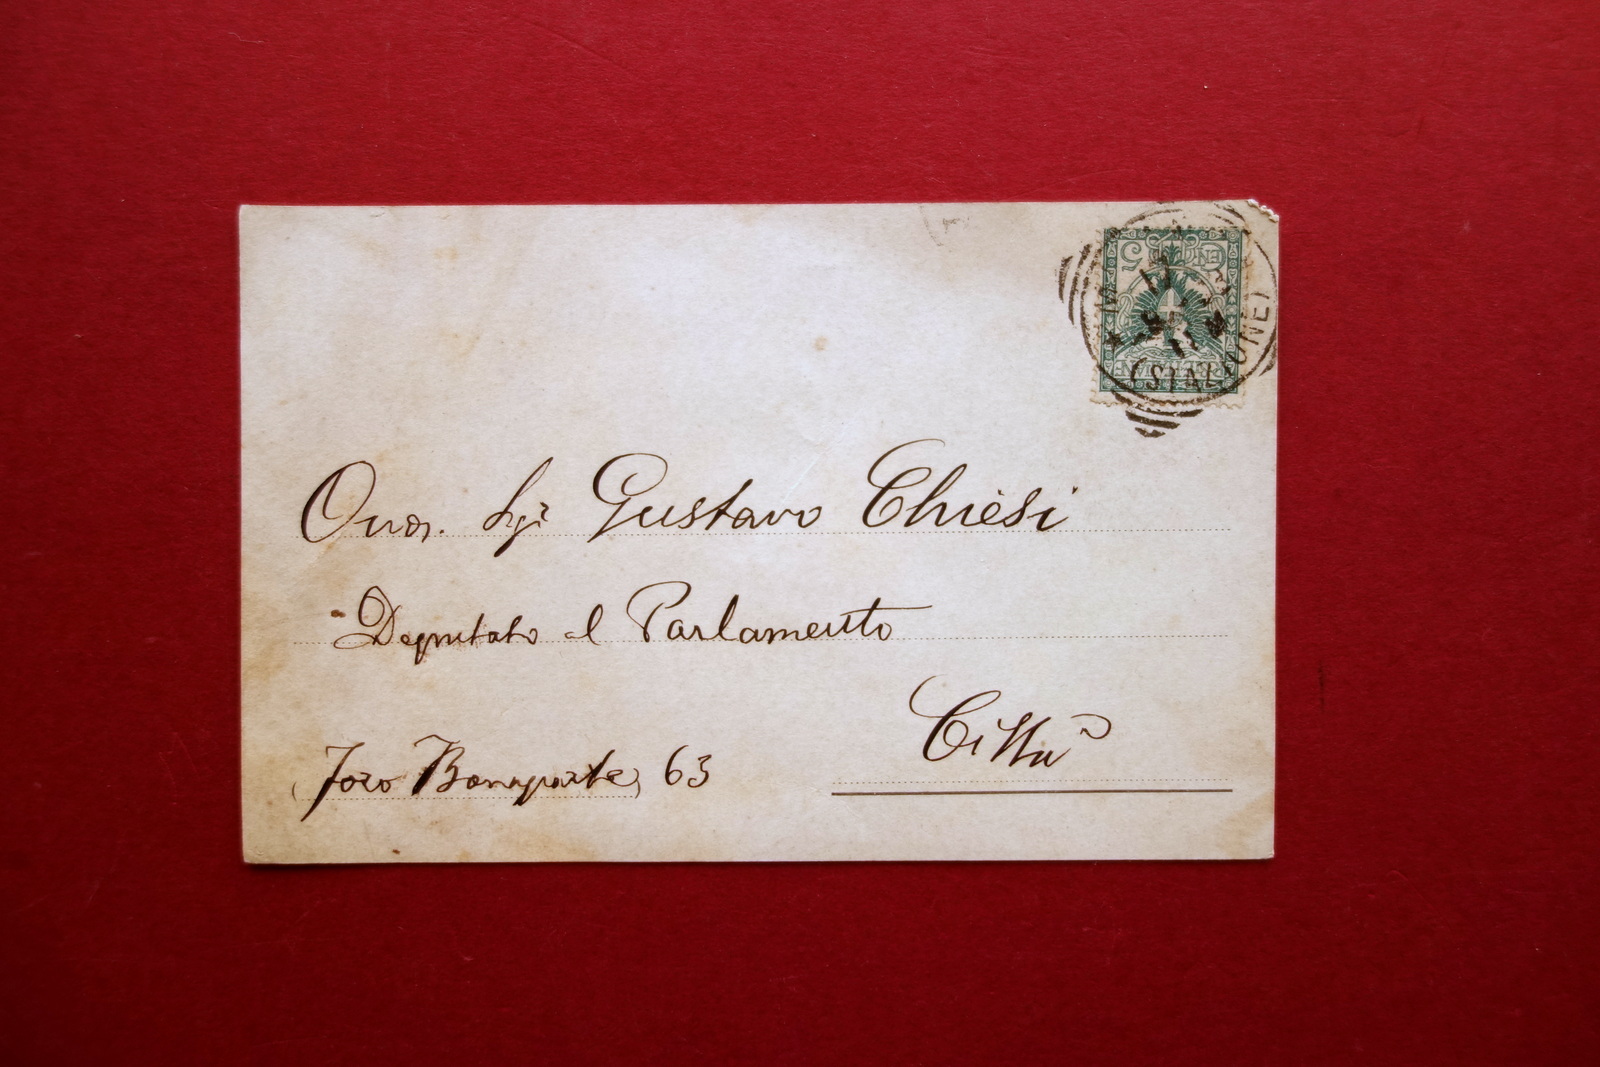 (STAZIONE)
Onor. Sigr Gustavo Chiesi
Deputato al Parlamento
Città
(Foro Bonaparte) 63